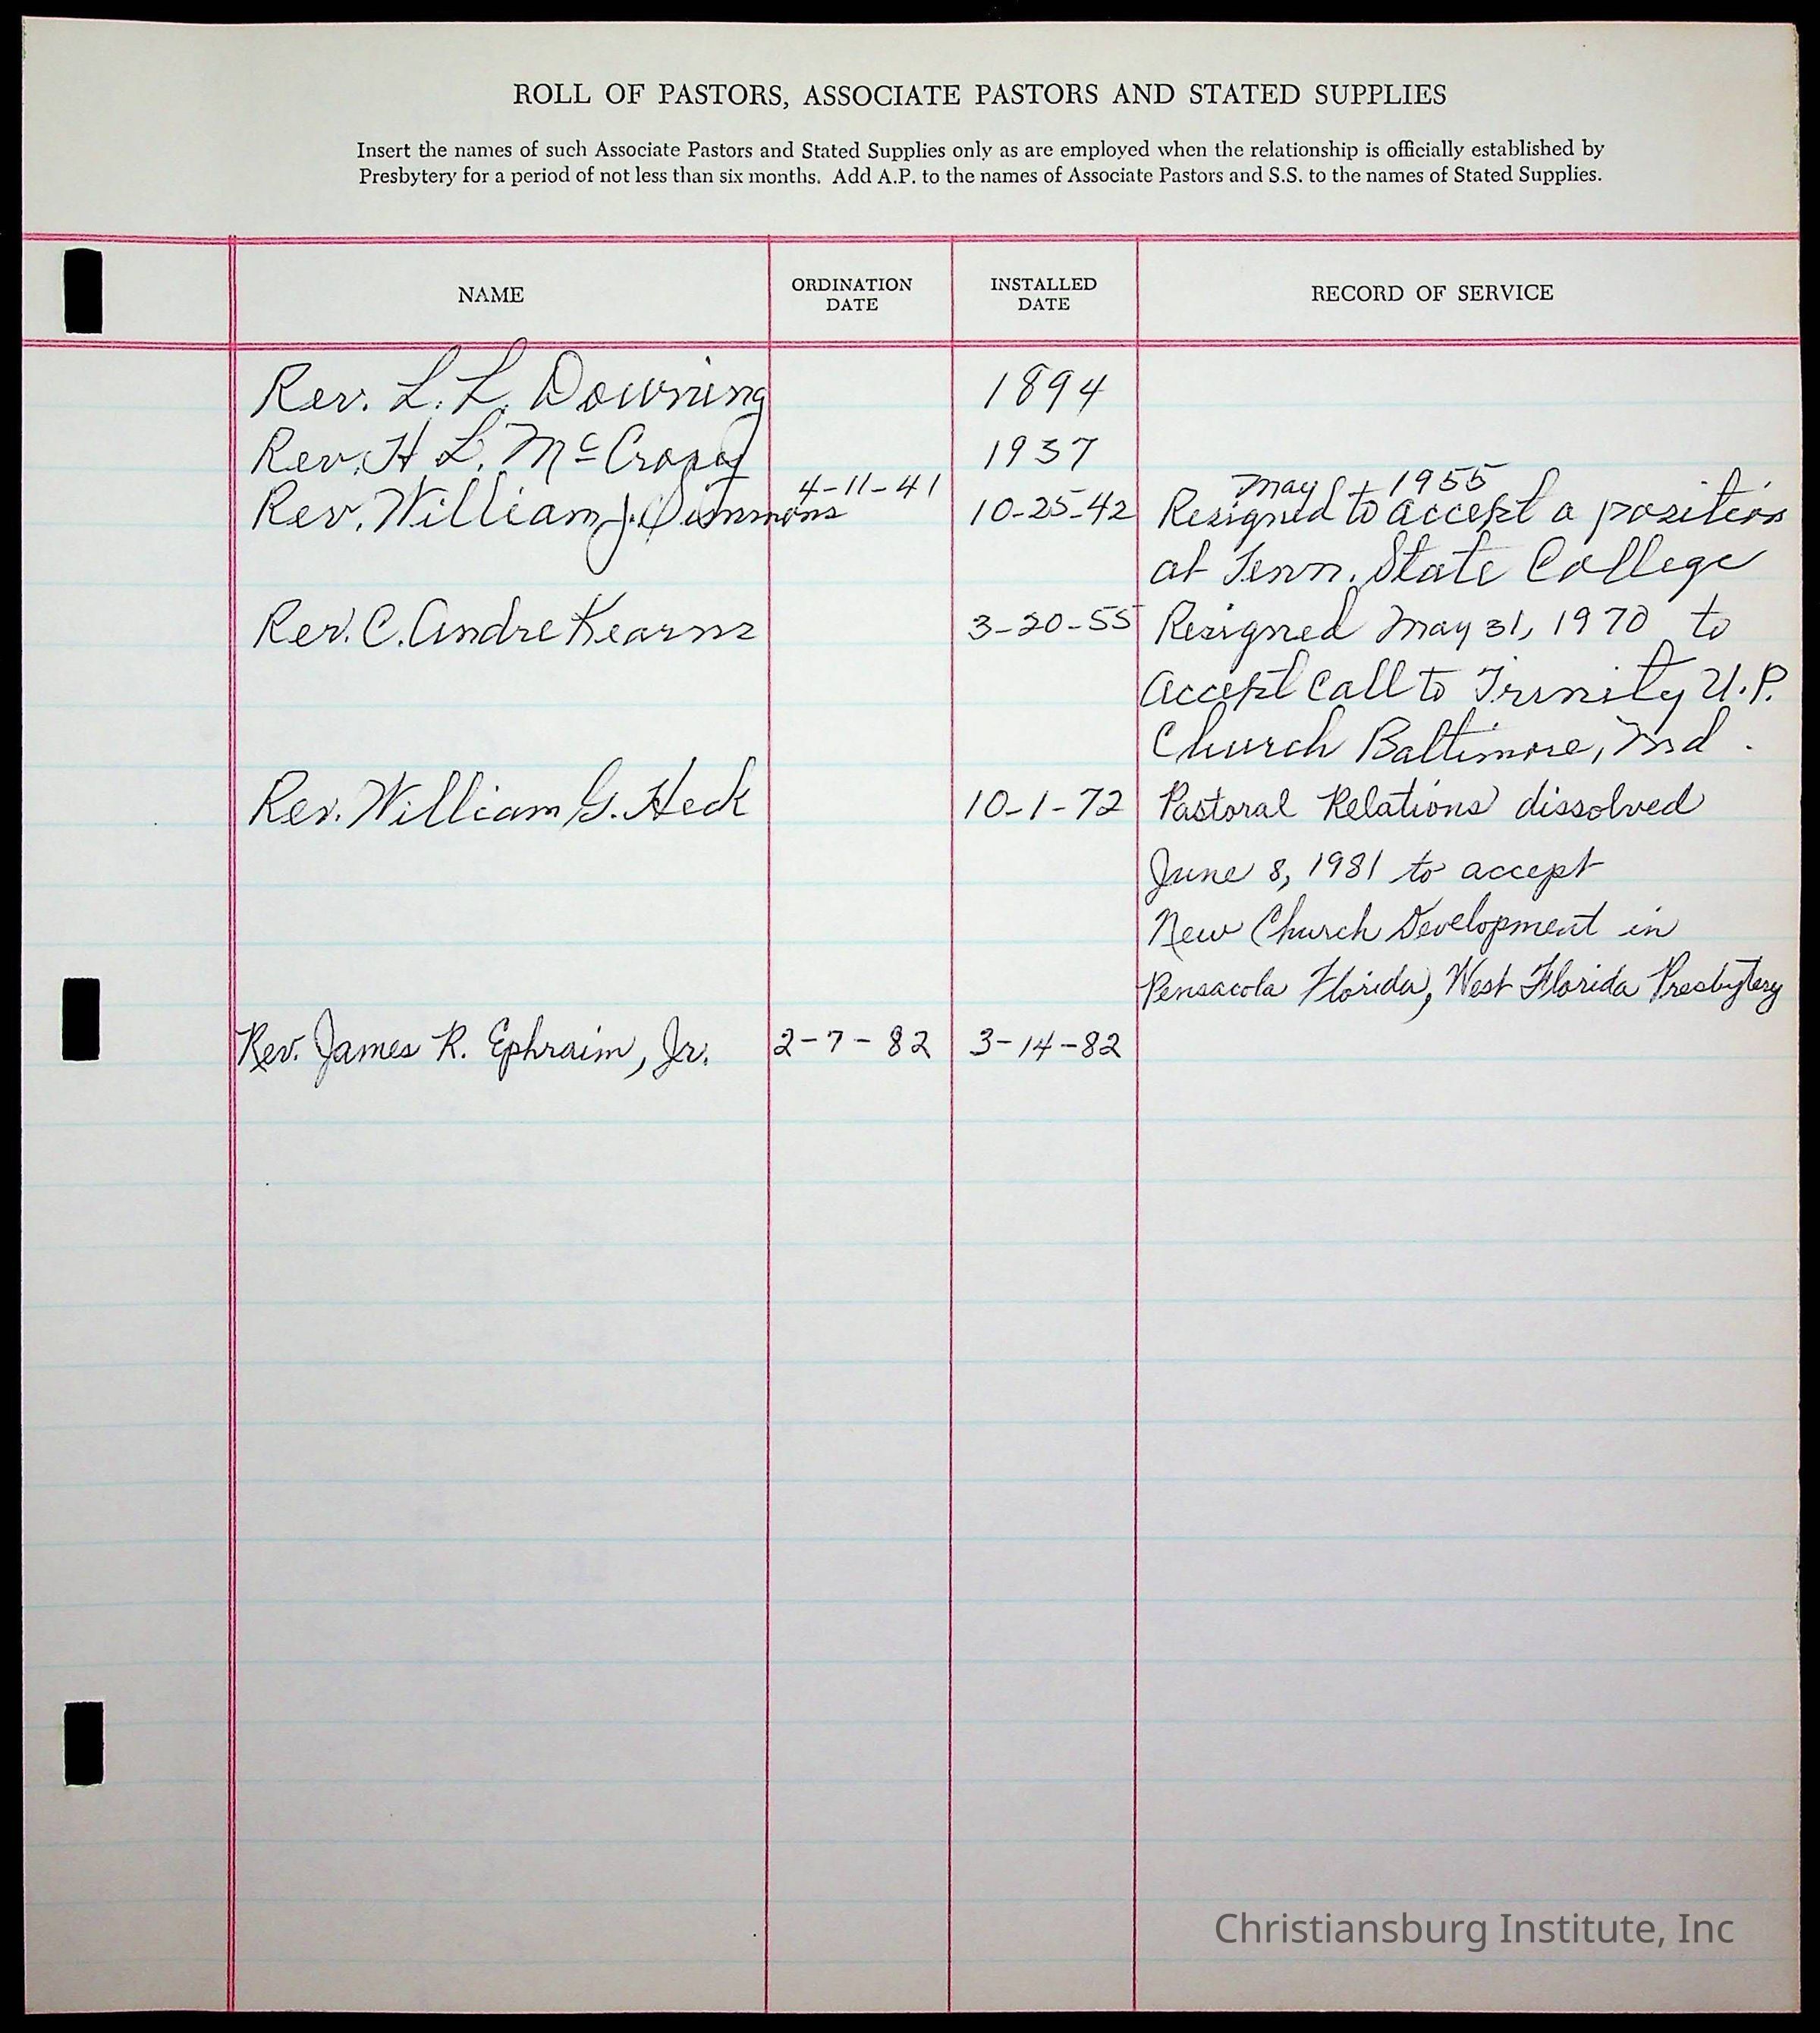 ROLL OF PASTORS, ASSOCIATE PASTORS AND STATED SUPPLIES
Insert the names of such Associate Pastors and Stated Supplies only as are employed when the relationship is officially established by
Presbytery for a period of not less than six months. Add A.P. to the names of Associate Pastors and S.S. to the names of Stated Supplies.
NAME ORDINATION DATE INSTALLED DATE RECORD OF SERVICE
Rev. L. L. Downing 1894
Rev. H. L. McCrorey 1937
Rev. William J. Simmons 4-11-41 10-25-42 Resigned May 1955 to accept a position
at Tenn. State College
Rev. C. Andre Kearns 3-20-55 Resigned May 31, 1970 to
Accept Call to Trinity U.P.
Church Baltimore, Md.
Rev. William G. Heck 10-1-72 Pastoral Relations dissolved
June 8, 1981 to accept
New Church Development in
Pensacola Florida, West Florida Presbytery
Rev. James R. Ephraim, Jr. 2-7-82 3-14-82
Christiansburg Institute, Inc